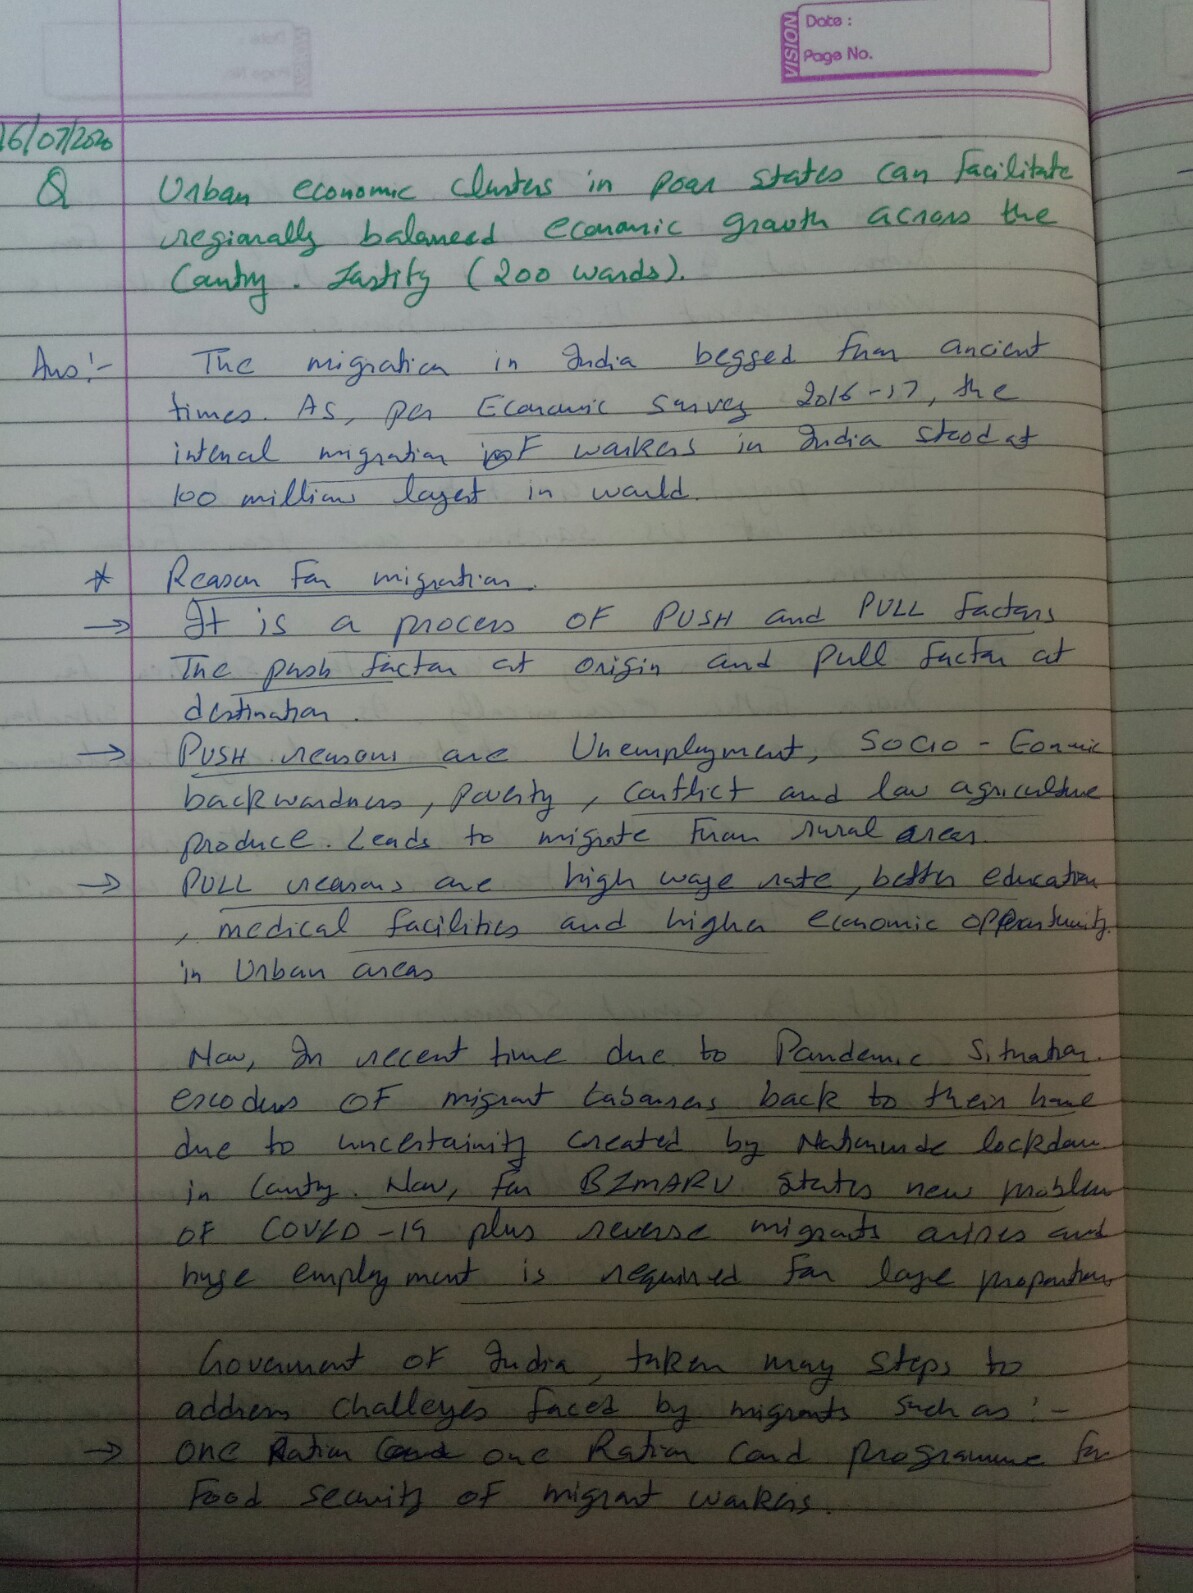 VISION
Date :
Page No.
16/07/2020
Q Urban economic clusters in poor states can facilitate
regionally balanced economic growth across the
Country. Justify (200 words).
Ans:- The migration in India begged from ancient
times. As, per Economic Survey 2016-17, the
internal migration of workers in India stood at
100 millions largest in world.
* Reason for migration.
→ It is a process of PUSH and PULL factors
The push factor at origin and pull factor at
destination.
→ PUSH reasons are Unemployment, Socio-Econmic
backwardness, poverty, conflict and low agriculture
produce. Leads to migrate from rural areas.
→ PULL reasons are high wage rate, better education
, medical facilities and higher economic opportunity
in Urban areas
Now, In recent time due to Pandemic Situation.
exodus of migrant labourers back to their home
due to uncertainity created by Nationwide lockdown
in Country. Now, for BIMARU states new problem
of COVID-19 plus reverse migrants arises and
huge employment is required for large proportions
Government of India, taken many steps to
address challenges faced by migrants such as :-
→ one one Ration Card programme for
Food security of migrant workers.